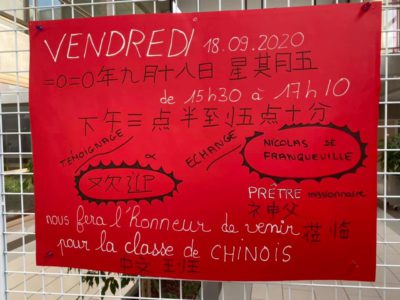 VENDREDI 18.09.2020
二0二0年九月十八日 星其月五
de 15h30 à 17h10
下午三点半到五点十分
TÉMOIGNAGE & ECHANGE
NICOLAS DE FRANQUEVILLE
欢迎
PRÊTRE missionnaire
神父
nous fera l'honneur de venir 莅临
pour la classe de CHINOIS
中文